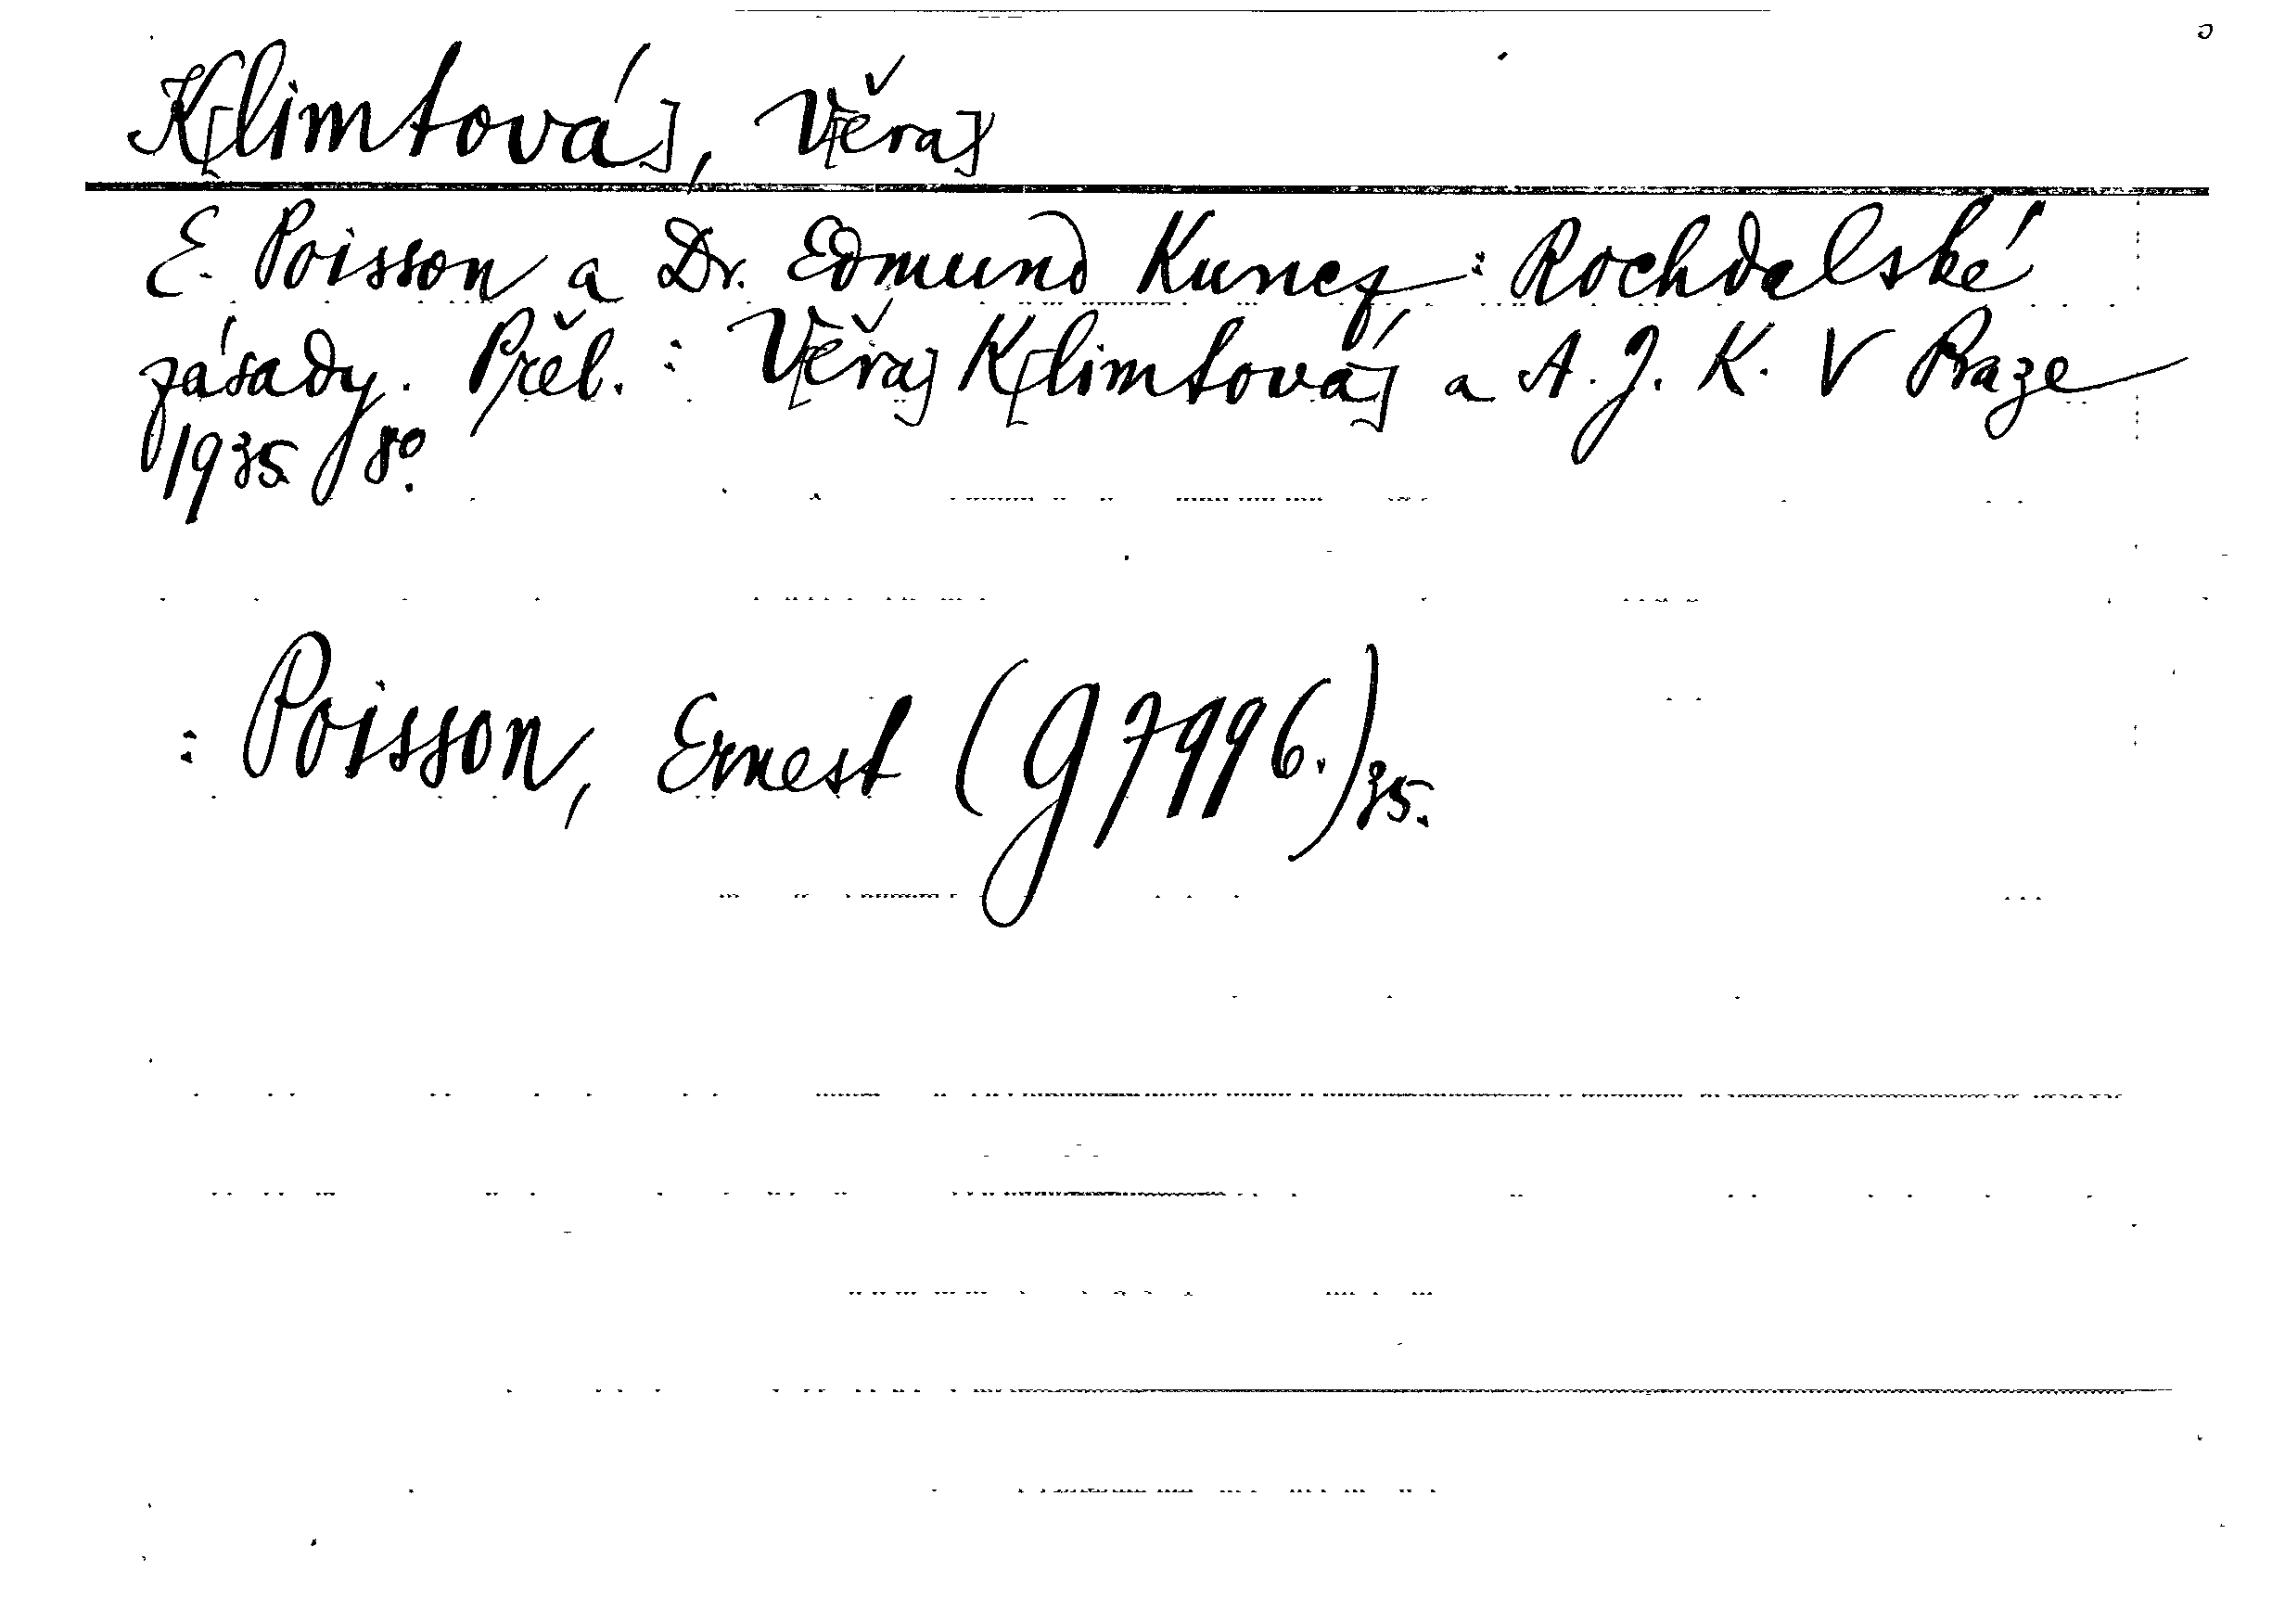 K[limtová], V[ěra]
E. Poisson a Dr. Edmund Kuncz: Rochdalské
zásady. Přel.: V[ěra] K[limtová] a A. J. K. V Praze
1935 8°.
: Poisson, Ernest (G 7996.) 35.